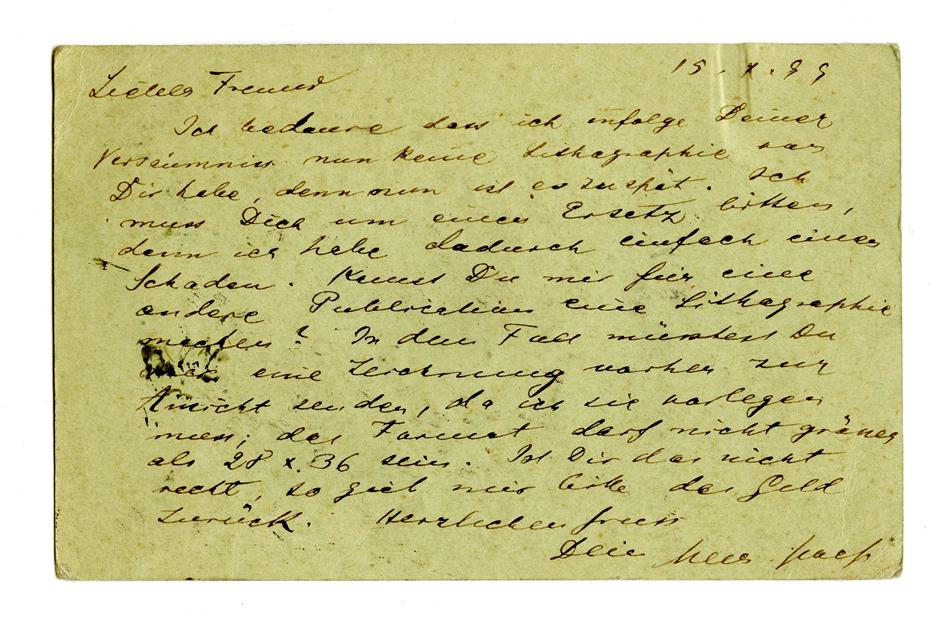 15. X. 99
Liebes Freund
Ich bedaure dass ich infolge Deiner
Versäumniss nun keine Lithographie von
Dir habe, denn nun ist es zu spät. Ich
muss Dich um einen Ersatz bitten,
denn ich habe dadurch einfach einen
Schaden. Kannst Du mir für eine
andere Publication eine Lithographie
machen? In dem Fall müsstest Du
eine Zeichnung vorher zur
Ansicht senden, da ich sie vorlegen
muss; das Format darf nicht grösser
als 28 x. 36 sein. Ist Dir das nicht
recht, so gieb mir bitte das Geld
zurück. Herzlichen Gruss
Dein